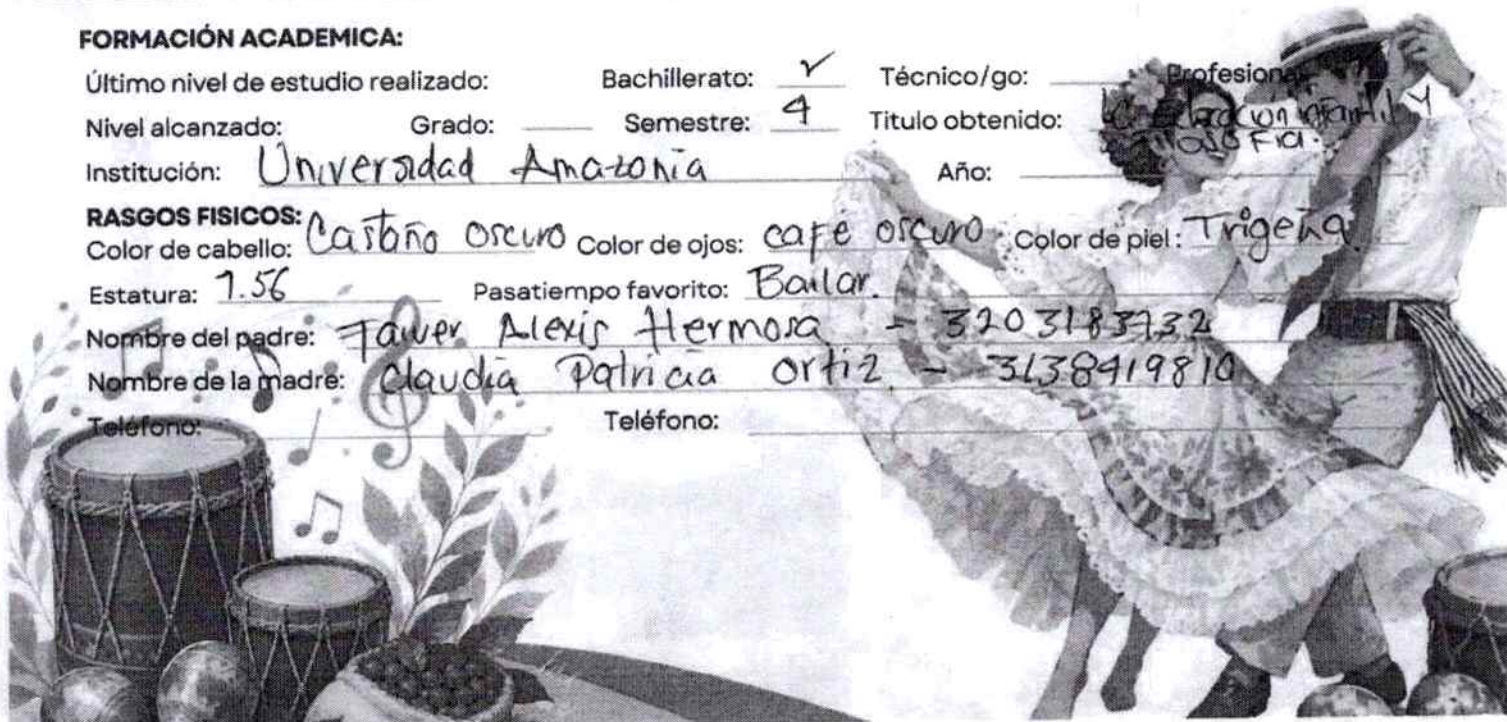 FORMACIÓN ACADEMICA:
Último nivel de estudio realizado: Bachillerato: ✓ Técnico/go: Profesional:
Nivel alcanzado: Grado: Semestre: 4 Titulo obtenido: Lic. Educación infantil y
Filosofia.
Institución: Universidad Amazonia Año:
RASGOS FISICOS:
Color de cabello: Castaño oscuro Color de ojos: café oscuro Color de piel: Trigeña.
Estatura: 1.56 Pasatiempo favorito: Bailar.
Nombre del padre: Alexis Hermosa - 3203183732
Nombre de la madre: Claudia Patricia Ortiz - 3138419810
Teléfono: Teléfono: